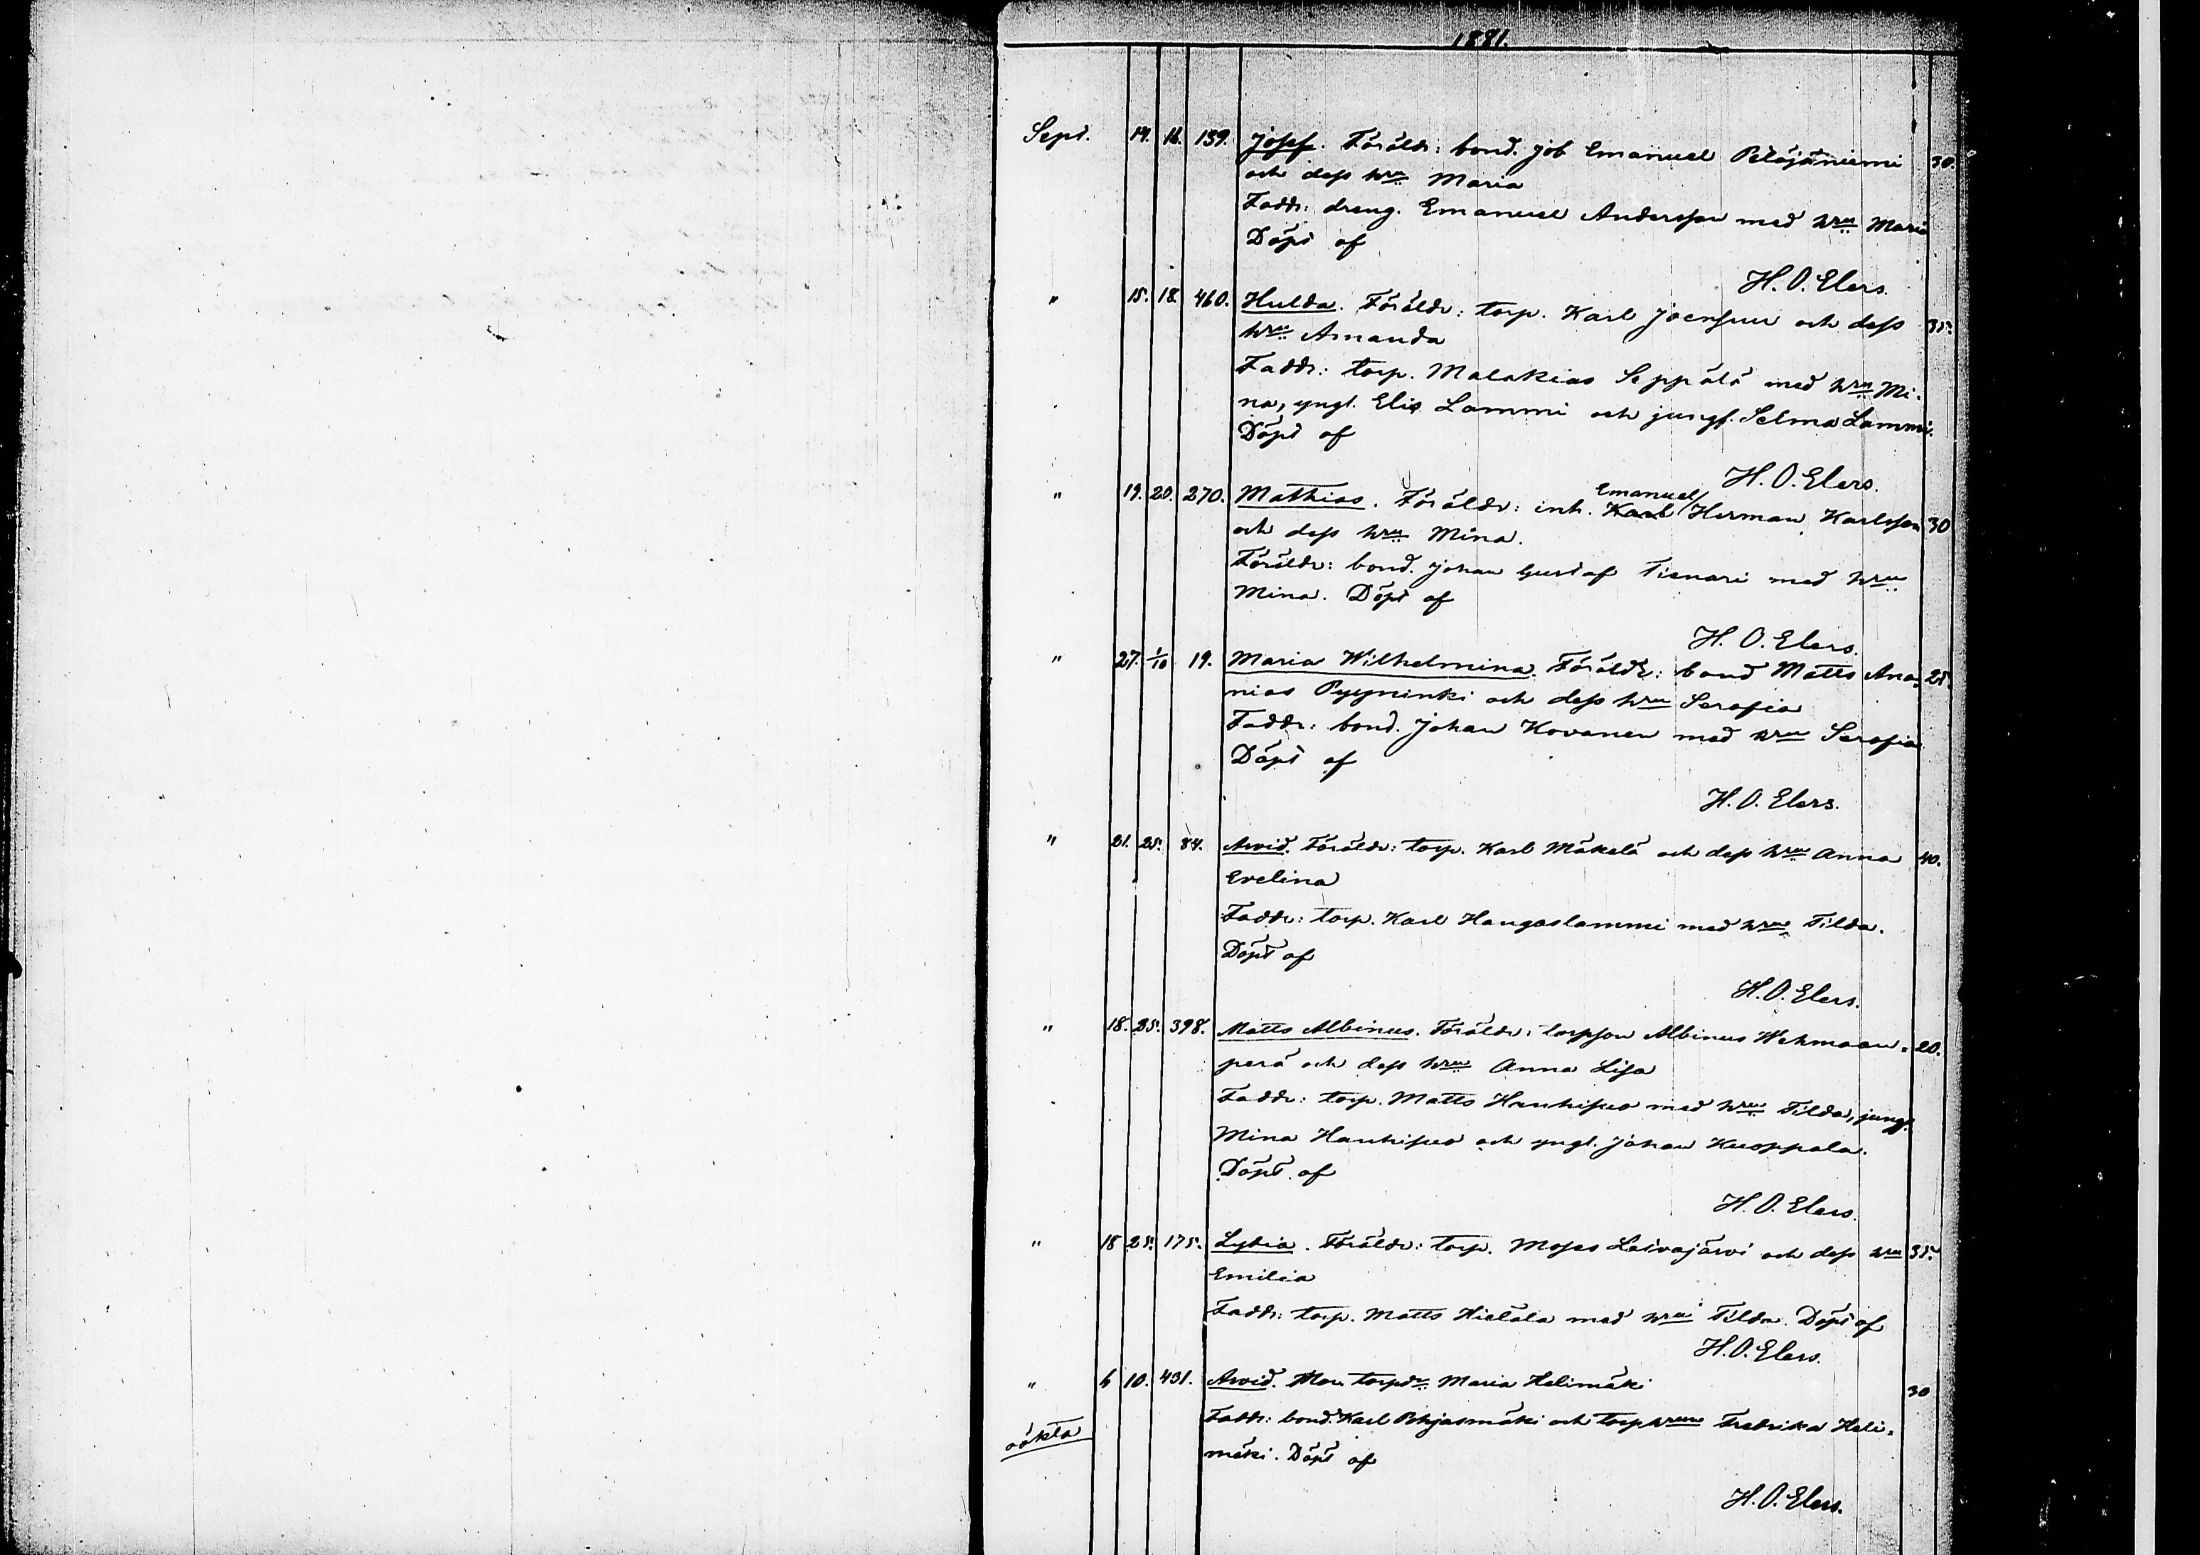 1881.
Sept. 14. 16. 139. Josef. Föräldr: bond. Job Emanuel Petäjäniemi 30.
och dess hru Maria
Faddr: dreng. Emanuel Andersson med hru Maria
Döpt af
H. O. Elers.
" 15. 18. 460. Hulda. Föräldr: torp. Karl Joensuu och dess 35.
hru Amanda
Faddr: torp. Malakias Seppälä med hru Mi-
na, yngl. Elis Lammi och jungf. Selma Lammi.
Döpt af
H. O. Elers.
" 19. 20. 270. Mathias. Föräldr: inh. Emanuel Herman Karlsson 30
och dess hru Mina.
Föräldr: bond. Johan Gustaf Tienari med hru
Mina. Döpt af
H. O. Elers.
" 27. 1/10 19. Maria Wilhelmina. Föräldr: bond Matts Ana- 25.
nias Pyyninki och dess hru Serafia
Faddr: bond. Johan Kovanen med hru Serafia
Döpt af
H. O. Elers.
" 21. 25. 84. Arvid. Föräldr: torp. Karl Mäkelä och dess hru Anna 40.
Evelina
Faddr: torp. Karl Hangaslammi med hru Tilda.
Döpt af
H. O. Elers.
" 18. 25. 398. Matts Albinus. Föräldr: torpson Albinus Wehmaan- 20.
perä och dess hru Anna Lisa
Faddr: torp. Matts Hanhisuo med hru Tilda, jungf.
Mina Hanhisuo och yngl. Johan Kuoppala.
Döpt af
H. O. Elers.
" 18 25. 175. Lydia. Föräldr: torp. Moses Laivajärvi och dess hru 35.
Emilia
Faddr: torp. Matts Hietala med hru Tilda. Döpt af
H. O. Elers.
" 6 10. 431. Arvid. Mor: torpdr Maria Helimäki 30
Faddr: bond. Karl Pohjasmäki och torphrun Fredrika Heli-
oäkta mäki. Döpt af
H. O. Elers.